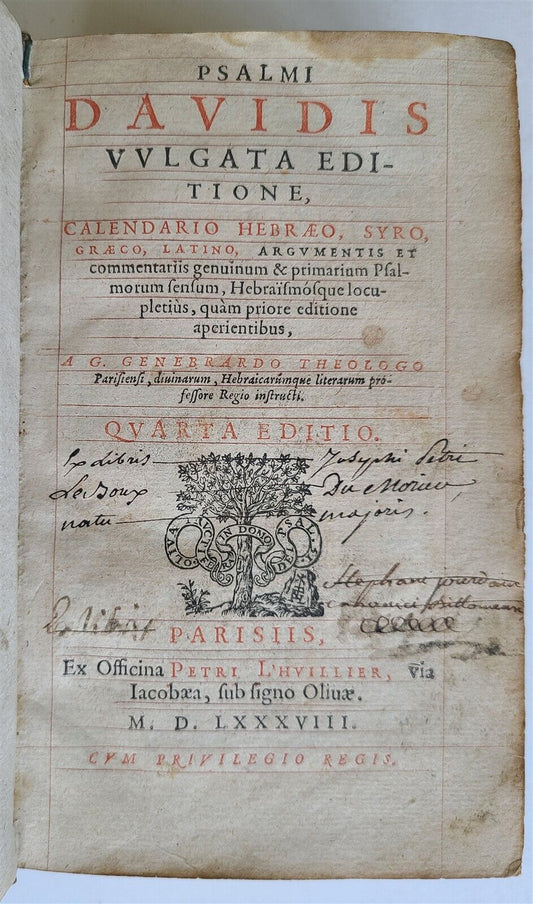 PSALMI
DAVIDIS
VVLGATA EDI-
TIONE,
CALENDARIO HEBRÆO, SYRO,
GRÆCO, LATINO, ARGVMENTIS ET
commentariis genuinum & primarium Psal-
morum ſenſum, Hebraïſmósque locu-
pletiùs, quàm priore editione
aperientibus,
A G. GENEBRARDO THEOLOGO
Pariſienſi, diuinarum, Hebraicarúmque literarum pro-
feſſore Regio inſtructi.
QVARTA EDITIO.
Ex Libris Josephi Petri
Le Doux Du
natu majoris.
OLIVA FRVCTIF. IN DOMO PSAL.
Stephani
Ex libris
PARISIIS,
Ex Officina PETRI L'HVILLIER, via
Iacobæa, ſub ſigno Oliuæ.
M. D. LXXXVIII.
CVM PRIVILEGIO REGIS.